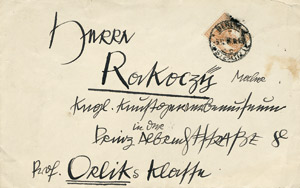 Herrn
Rakoczÿ Maler
Kngl. Kunstgewerbemuseum
in der
Prinz Albrechtstraße 8
Prof. Orliks Klasse